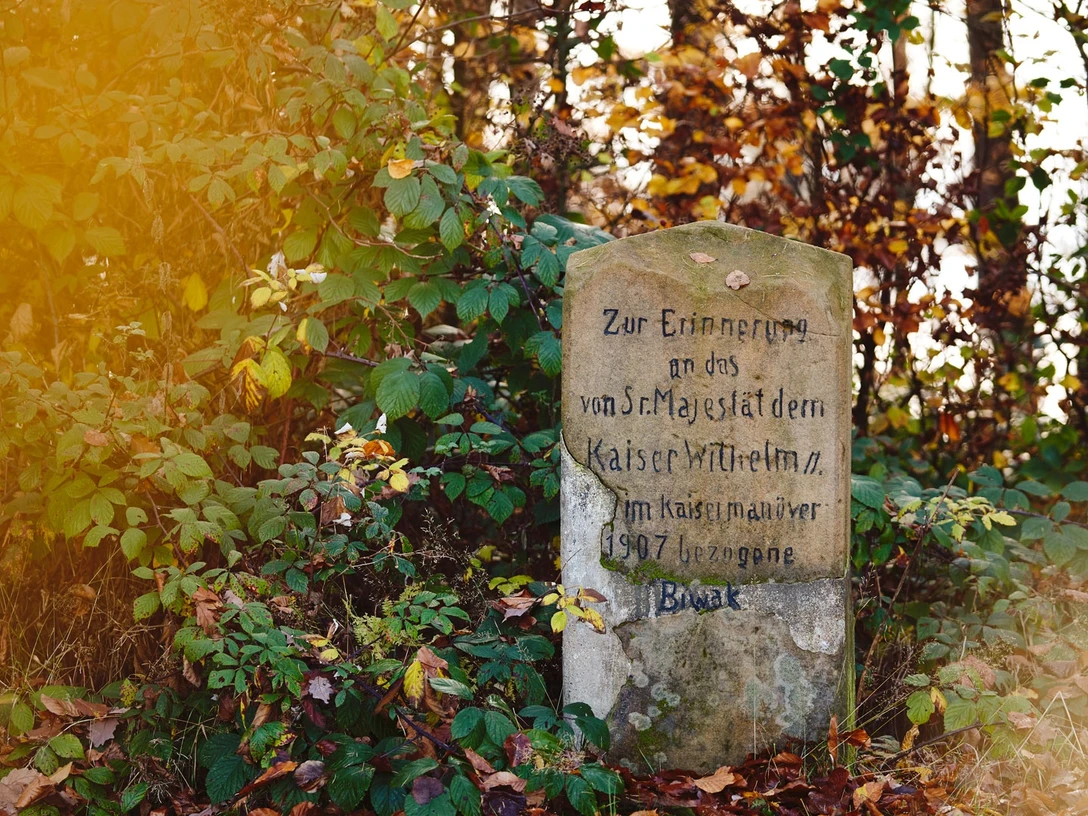 Zur Erinnerung
an das
von Sr. Majestät dem
Kaiser Wilhelm II.
im Kaisermanöver
1907 bezogene
Biwak